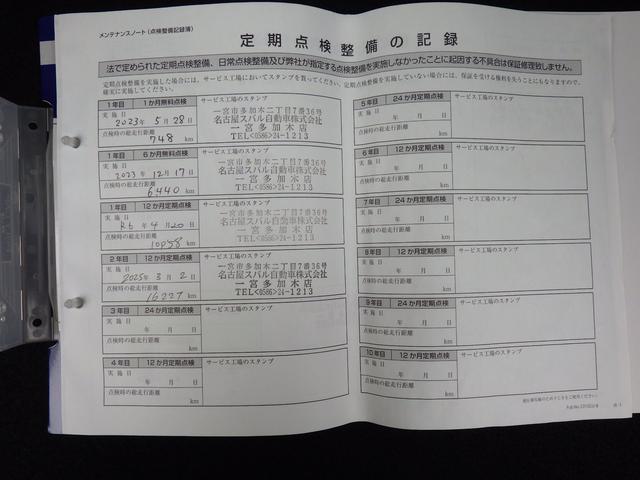 メンテナンスノート(点検整備記録簿)
定期点検整備の記録
法で定められた定期点検整備、日常点検整備及び弊社が指定する点検整備を実施しなかったことに起因する不具合は保証修理致しません。
定期点検整備を実施した場合には、サービス工場においてスタンプを貰ってください。定期点検整備を実施していない場合には、保証を受ける権利を失うことにもなりますので、
確実に実施してください。
1年目 1か月無料点検 サービス工場のスタンプ
実施日
2023年 5月 28日
点検時の総走行距離
748 km
一宮市多加木二丁目7番36号
名古屋スバル自動車株式会社
一宮多加木店
TEL<0586>24-1213
1年目 6か月無料点検 サービス工場のスタンプ
実施日
2023年 12月 17日
点検時の総走行距離
6440 km
一宮市多加木二丁目7番36号
名古屋スバル自動車株式会社
一宮多加木店
TEL<0586>24-1213
1年目 12か月定期点検 サービス工場のスタンプ
実施日
R6年 4月 20日
点検時の総走行距離
km
一宮市多加木二丁目7番36号
名古屋スバル自動車株式会社
一宮多加木店
TEL<0586>24-1213
2年目 12か月定期点検 サービス工場のスタンプ
実施日
2025年 3月 2日
点検時の総走行距離
16227 km
一宮市多加木二丁目7番36号
名古屋スバル自動車株式会社
一宮多加木店
TEL<0586>24-1213
3年目 24か月定期点検 サービス工場のスタンプ
実施日
年 月 日
点検時の総走行距離
km
4年目 12か月定期点検 サービス工場のスタンプ
実施日
年 月 日
点検時の総走行距離
km
5年目 24か月定期点検 サービス工場のスタンプ
実施日
年 月 日
点検時の総走行距離
km
6年目 12か月定期点検 サービス工場のスタンプ
実施日
年 月 日
点検時の総走行距離
km
7年目 24か月定期点検 サービス工場のスタンプ
実施日
年 月 日
点検時の総走行距離
km
8年目 12か月定期点検 サービス工場のスタンプ
実施日
年 月 日
点検時の総走行距離
km
9年目 24か月定期点検 サービス工場のスタンプ
実施日
年 月 日
点検時の総走行距離
km
10年目 12か月定期点検 サービス工場のスタンプ
実施日
年 月 日
点検時の総走行距離
km